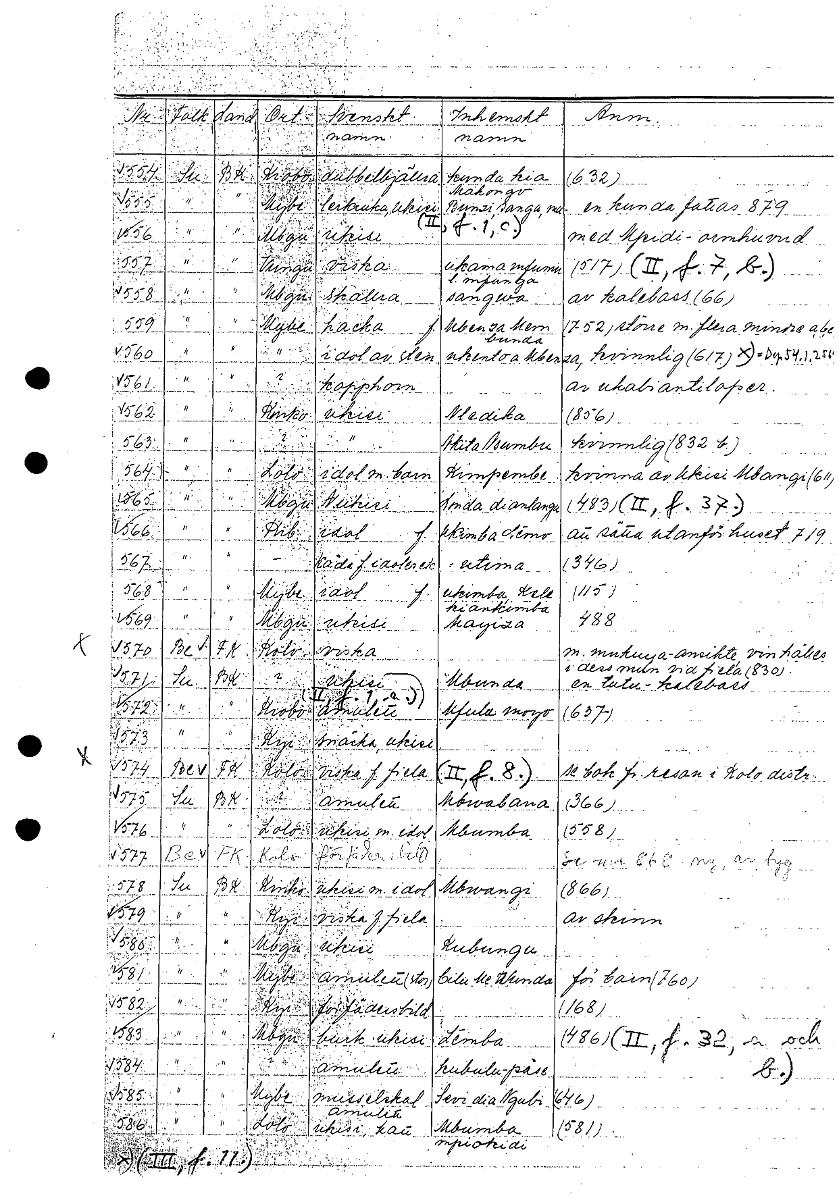 Nr. Folk Land Ort Svenskt namn Inhemskt namn Anm.
554 Su BK Krobo dubbelbjällra kunda kia (632)
Makongo
555 " " Mybe lerkruka, nkisi Bunzi, sanga, ma- en kunda fattas 879
556 " " Mbgu nkisi (II, f. 1, c.) med Mpidi-ormhuvud
557 " " viska nkama mfumu (517) (II, f. 7, b.)
l. mfunga
558 " " Mbgu skallra sangwa av kalebass (66)
559 " " Mybe hacka f Mbenza Mem (752, större m. flera mindre
bunda
560 " " " idol av sten nkento a Mbenza, kvinnlig (617) x)
561 " " ? kopphorn av nkabiantiloper.
562 " " Kinko nkisi Nladika (856)
563 " " ? " Nkita Nsumbu kvinnlig (832 b)
564 " " Lolo idol m. barn Kimpembe kvinna av Nkisi Mbangi (611)
565 " " Mbgu Nkisi (483) (II, f. 37.)
566 " " idol f. nkimba Lemo att sätta utanför huset 719
567 " " - - utima (346)
568 " " Mybe idol f nkimba, (115)
kiankimba
569 " " Mbgu nkisi Mayiza 488
x 570 Bev FK Kolo viska m. mukuya-ansikte, vin hälles
i dess mun vid fiela (830)
571 Su BK ? nkisi Mbunda en tutu-kalebass
(II, f. 1. a.)
572 " " Krobo amulett Mfula moyo (637)
573 " " Kyi snäcka, nkisi
x 574 Bev FK Kolo viska f. fiela (II, f. 8.) se bok fr. resan i Kolo distr.
575 Su BK ? amulett Mbwabana (366)
576 " " Lolo nkisi m. idol Mbumba (558)
577 Bev FK Kolo förfädersbild av tyg
578 Su BK Kinko nkisi m. idol Mbwangi (866)
579 " " Kyi viska f fiela av skinn
580 " " Mbgu nkisi Kubungu
581 " " Mybe amulett (stor) för barn (760)
582 " " Kyi förfädersbild (168)
583 " " Mbgu burk nkisi Lemba (486) (II, f. 32, a och
584 " " " amulett kubulu-påse b.)
585 " " Mybe musselskal Sevi dia Ngubi (646)
amulett
586 " " Lolo nkisi, Mbumba (581)
mpiokidi
x) (III, f. 11.)